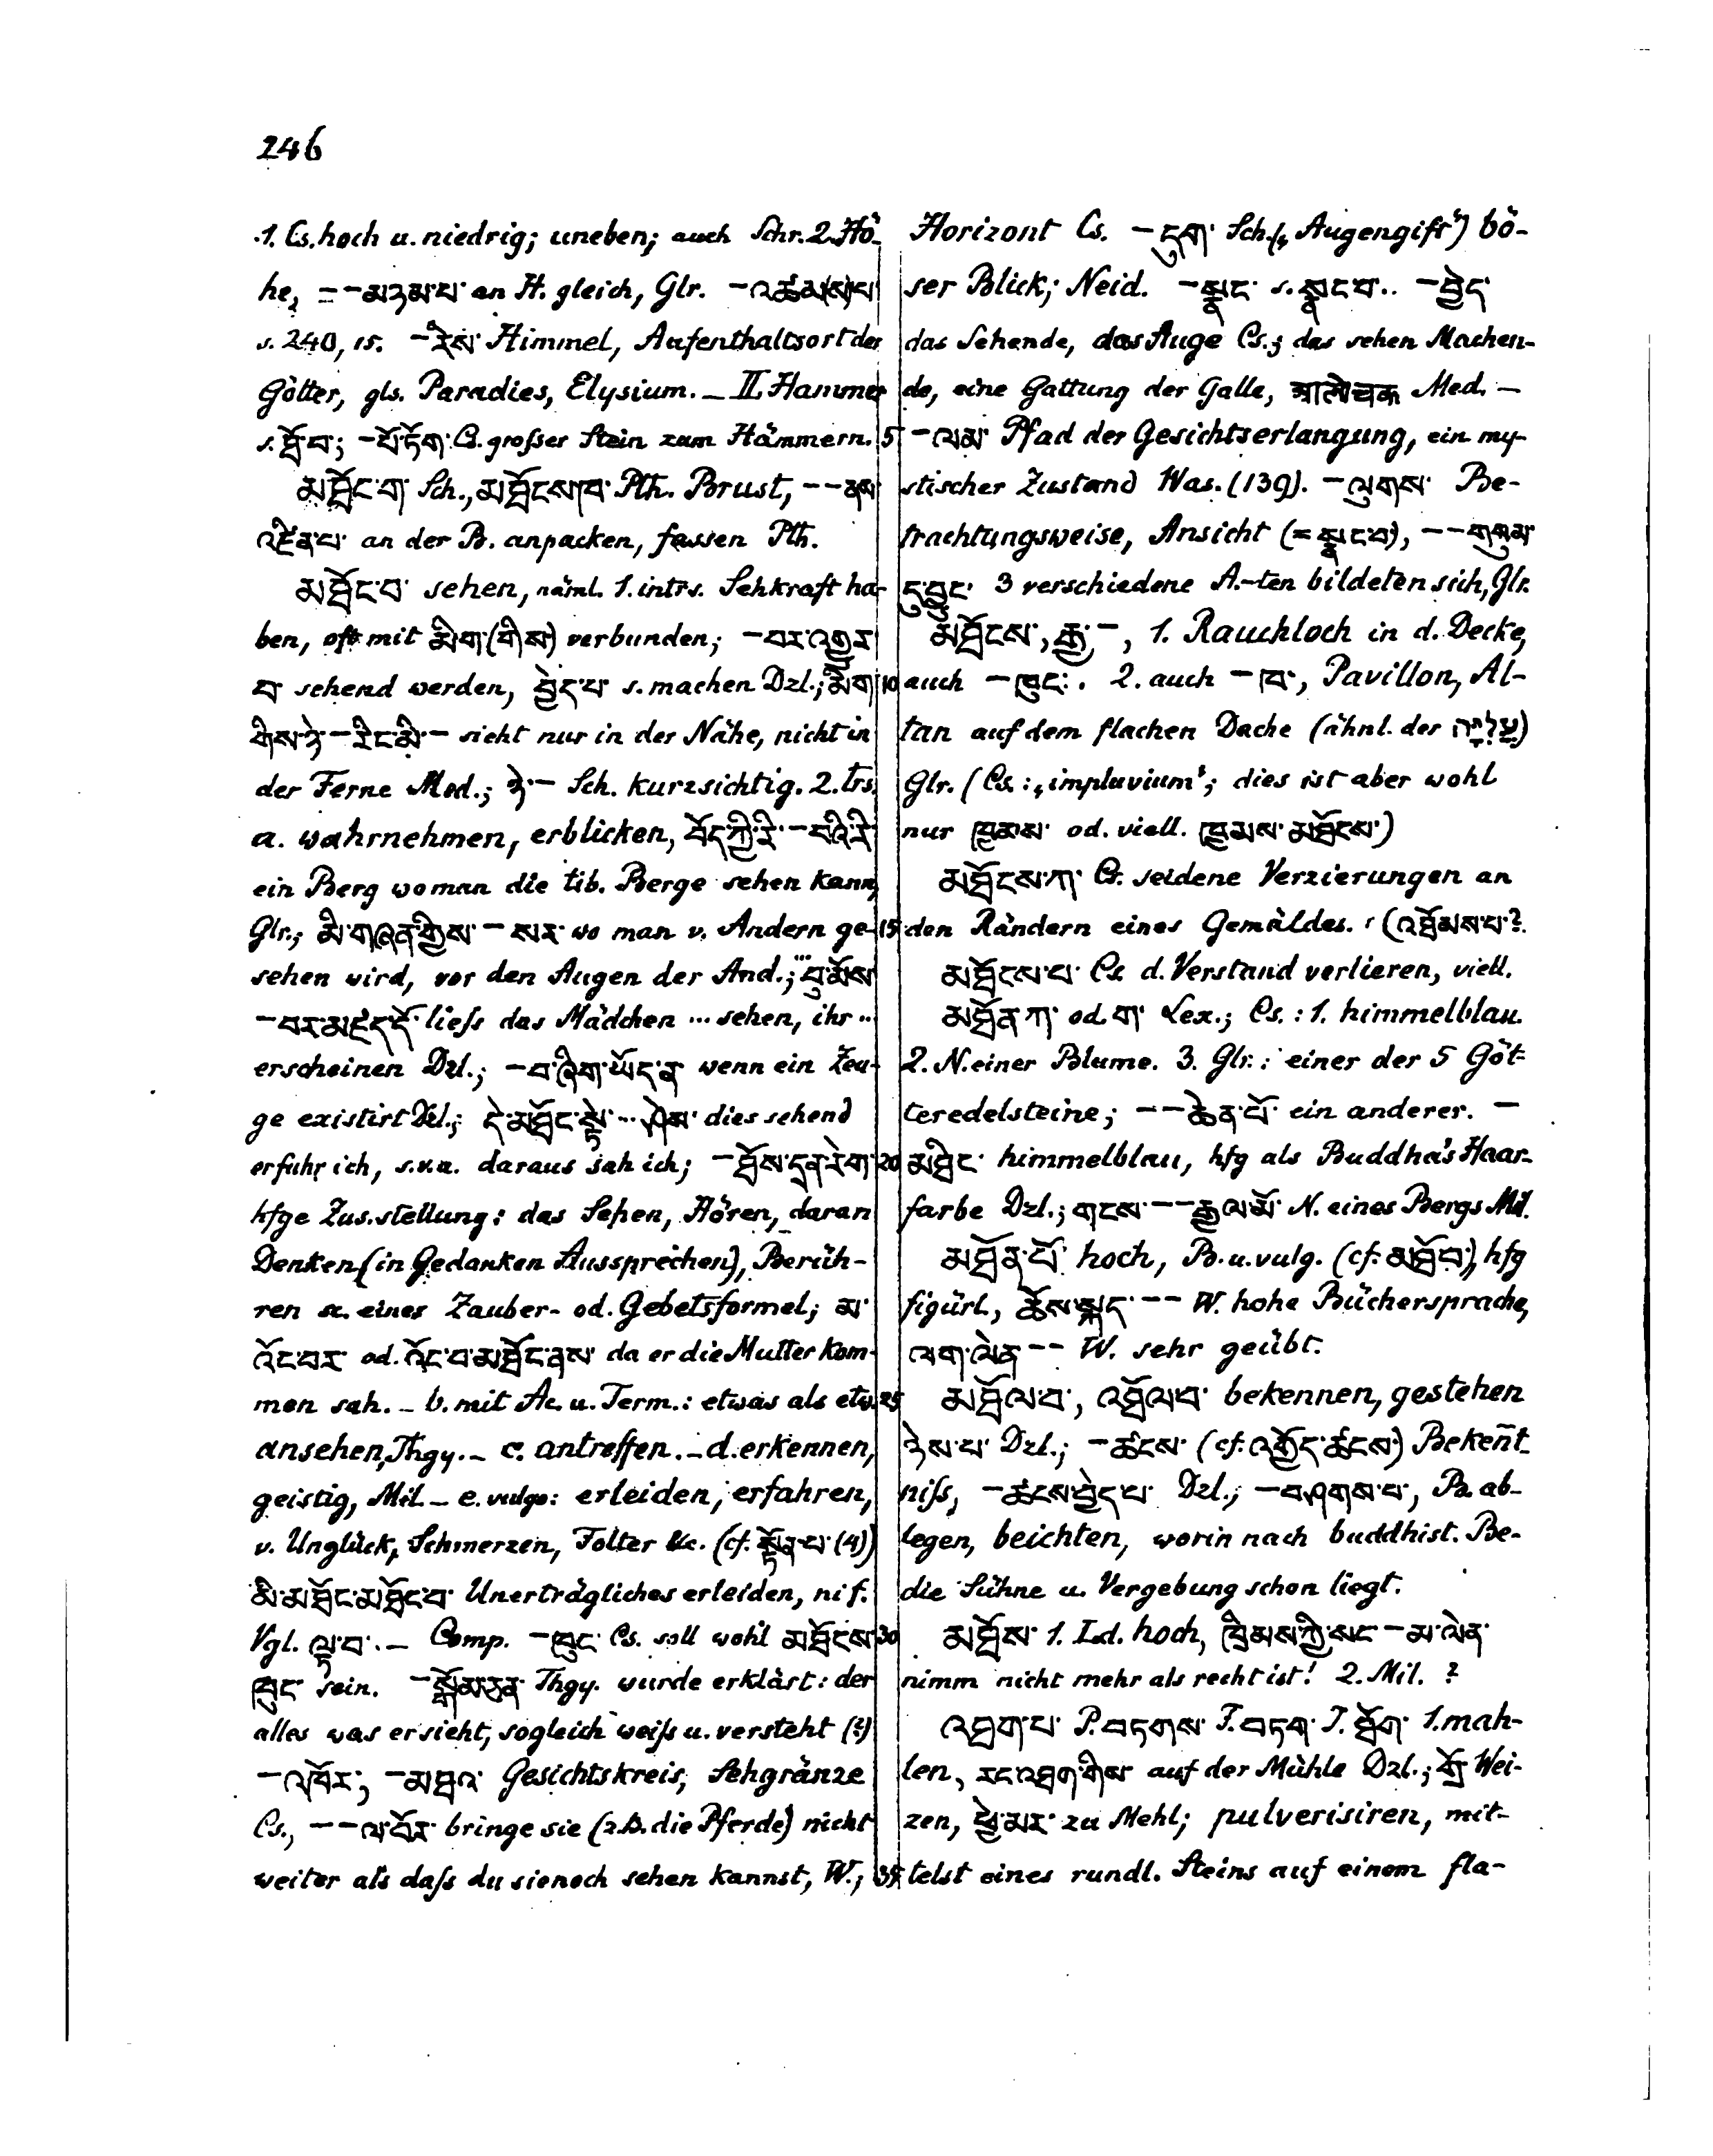 246
1. Cs. hoch u. niedrig; uneben; auch Schr. 2. Hö-
he, – –མཉམ་པ་ an H. gleich, Glr. –འཚམ(ས)པ
s. 240, 15. –རིས་ Himmel, Aufenthaltsort der
Götter, gls. Paradies, Elysium. – II. Hammer
s. ཐོ་བ་; –པོ་ཏོག་ Cs. großer Stein zum Hämmern.
མཐོང་ག་ Sch., མཐོངས་ཁ་ Pth. Brust, – –ནས་
འཛིན་པ་ an der B. anpacken, fassen Pth.
མཐོང་བ་ sehen, näml. 1. intrs. Sehkraft ha-
ben, oft mit མིག་(གིས) verbunden; –བར་འགྱུར
བ་ sehend werden, བྱེད་པ་ s. machen Dzl.; མིག་
གིས་ཉེ་–རིང་མི་– sieht nur in der Nähe, nicht in
der Ferne Med.; ཉེ་– Sch. kurzsichtig. 2. trs.
a. wahrnehmen, erblicken, བོད་ཀྱི་རི་–བའི་རི་
ein Berg wo man die tib. Berge sehen kann,
Glr.; མི་གཞན་གྱིས་–སར་ wo man v. Andern ge-
sehen wird, vor den Augen der And.; ... བུ་མོས
–བར་མཛད་དོ་ ließ das Mädchen ... sehen, ihr ..
erscheinen Dzl.; –བ་ཞིག་ཡོད་ན་ wenn ein Zeu-
ge existirt Dzl.; དེ་མཐོང་སྟེ་ ... ཤེས་ dies sehend
erfuhr ich, s.v.a. daraus sah ich; –ཐོས་དྲན་རེག་
hfge Zus.stellung: das Sehen, Hören, daran
Denken (in Gedanken Aussprechen), Berüh-
ren x. eines Zauber- od. Gebetsformel; མ་
འོང་བར་ od. འོང་བ་མཐོང་ནས་ da er die Mutter kom-
men sah. – b. mit Ac. u. Term.: etwas als etw.
ansehen, Thgy. – c. antreffen. – d. erkennen,
geistig, Mil. – e. vulgo: erleiden, erfahren,
v. Unglück, Schmerzen, Folter &c. (cf. སྟོན་པ་ (4))
མི་མཐོང་མཐོང་བ་ Unerträgliches erleiden, ni f.
Vgl. ལྟ་བ་. – Comp. –ཁུང་ Cs. soll wohl མཐོངས་
ཁུང་ sein. –སྒོམ་ཅན་ Thgy. wurde erklärt: der
alles was er sieht, sogleich weiß u. versteht (?)
–འཁོར་; –མཐའ་ Gesichtskreis, Sehgränze
Cs., – –ལ་བོར་ bringe sie (z.B. die Pferde) nicht
weiter als daß du sie noch sehen kannst, W.;
Horizont Cs. –དུག་ Sch. („Augengift“) bö-
ser Blick; Neid. –སྣང་ s. སྣང་བ་.. –བྱེད་
das Sehende, das Auge Cs.; das sehen Machen-
de, eine Gattung der Galle, Med. –
5 –ལམ་ Pfad der Gesichtserlangung, ein my-
stischer Zustand Was. (139). –ལུགས་ Be-
trachtungsweise, Ansicht (= སྣང་བ), – –གསུམ་
དུ་བྱུང་ 3 verschiedene A.-ten bildeten sich, Glr.
མཐོངས་, རྒྱ་–, 1. Rauchloch in d. Decke,
10 auch –ཁུང་. 2. auch –ཁ་, Pavillon, Al-
tan auf dem flachen Dache (ähnl. der עֲלִיָּה)
Glr. (Cs.: „impluvium“; dies ist aber wohl
nur ཁྱམས་ od. viell. ཁྱམས་མཐོངས་)
མཐོངས་ཀ་ Cs. seidene Verzierungen an
15 den Rändern eines Gemäldes. (འཐོམས་པ་?
མཐོངས་པ་ Cs. d. Verstand verlieren, viell.
མཐོན་ཀ་ od. ག་ Lex.; Cs.: 1. himmelblau.
2. N. einer Blume. 3. Glr.: einer der 5 Göt-
teredelsteine; – –ཆེན་པོ་ ein anderer. –
20 མཐིང་ himmelblau, hfg als Buddha's Haar-
farbe Dzl.; གངས་– –རྒྱལ་མོ་ N. eines Bergs Mil.
མཐོན་པོ་ hoch, B. u. vulg. (cf. མཐོ་བ་), hfg
figürl., ཆོས་སྐད་– – W. hohe Büchersprache,
ལག་ལེན་– – W. sehr geübt.
25 མཐོལ་བ་, འཐོལ་བ་ bekennen, gestehen
ཉེས་པ་ Dzl.; –ཚངས་ (cf. འགྱོད་ཚངས་) Bekeñt-
niß, –ཚངས་བྱེད་པ་ Dzl.; –བཤགས་པ་, B. ab-
legen, beichten, worin nach buddhist. Be-
die Sühne u. Vergebung schon liegt.
30 མཐོས་ 1. Ld. hoch, ཁྲིམས་ཀྱི་སང་–མ་ལེན་
nimm nicht mehr als recht ist! 2. Mil. ?
འཐག་པ་ P. བཏགས་ F. བཏག་ I. ཐོག་ 1. mah-
len, རང་འཐག་གིས་ auf der Mühle Dzl.; གྲོ་ Wei-
zen, ཕྱེ་མར་ zu Mehl; pulverisiren, mit-
35 telst eines rundl. Steins auf einem fla-